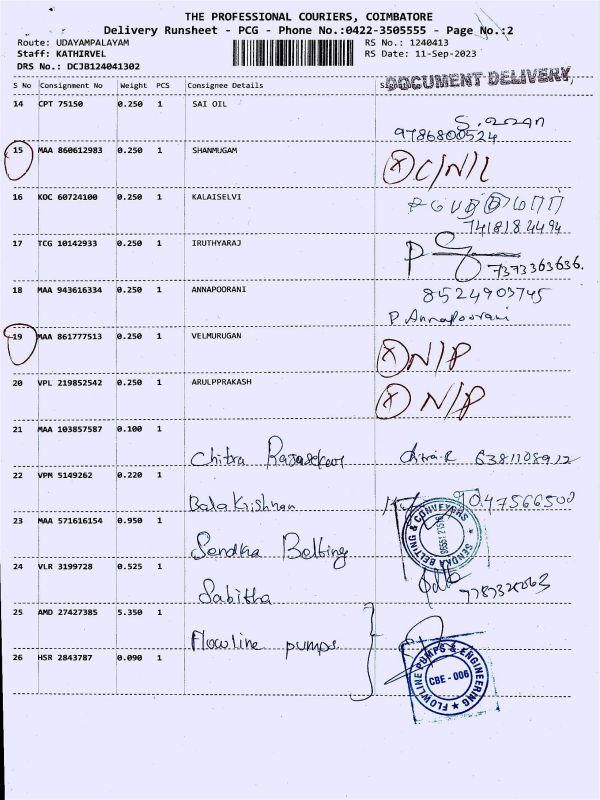 THE PROFESSIONAL COURIERS, COIMBATORE
Delivery Runsheet - PCG - Phone No.:0422-3505555 - Page No.:2
Route: UDAYAMPALAYAM RS No.: 1240413
Staff: KATHIRVEL RS Date: 11-Sep-2023
DRS No.: DCJB124041302
DOCUMENT DELIVERY
S No Consignment No Weight PCS Consignee Details
14 CPT 75150 0.250 1 SAI OIL
9786800524
15 MAA 860612983 0.250 1 SHANMUGAM X C/N/L
16 KOC 60724100 0.250 1 KALAISELVI
7418184494
17 TCG 10142933 0.250 1 IRUTHYARAJ
7373363636.
18 MAA 943616334 0.250 1 ANNAPOORANI 8524903745
P. Annapoorani
19 MAA 861777513 0.250 1 VELMURUGAN X N/P
20 VPL 219852542 0.250 1 ARULPPRAKASH X N/P
21 MAA 103857587 0.100 1
Chitra Rajasekar Chitra.R 6381108912
22 VPM 5149262 0.220 1
Bala Krishnan 9047566500
23 MAA 571616154 0.950 1
Sendha Belting
SENDKA BELTING & CONVEYORS
24 VLR 3199728 0.525 1
Sabitha
25 AMD 27427385 5.350 1
Flowline pumps.
26 HSR 2843787 0.090 1
FLOWLINE PUMPS & ENGINEERING
CBE - 006